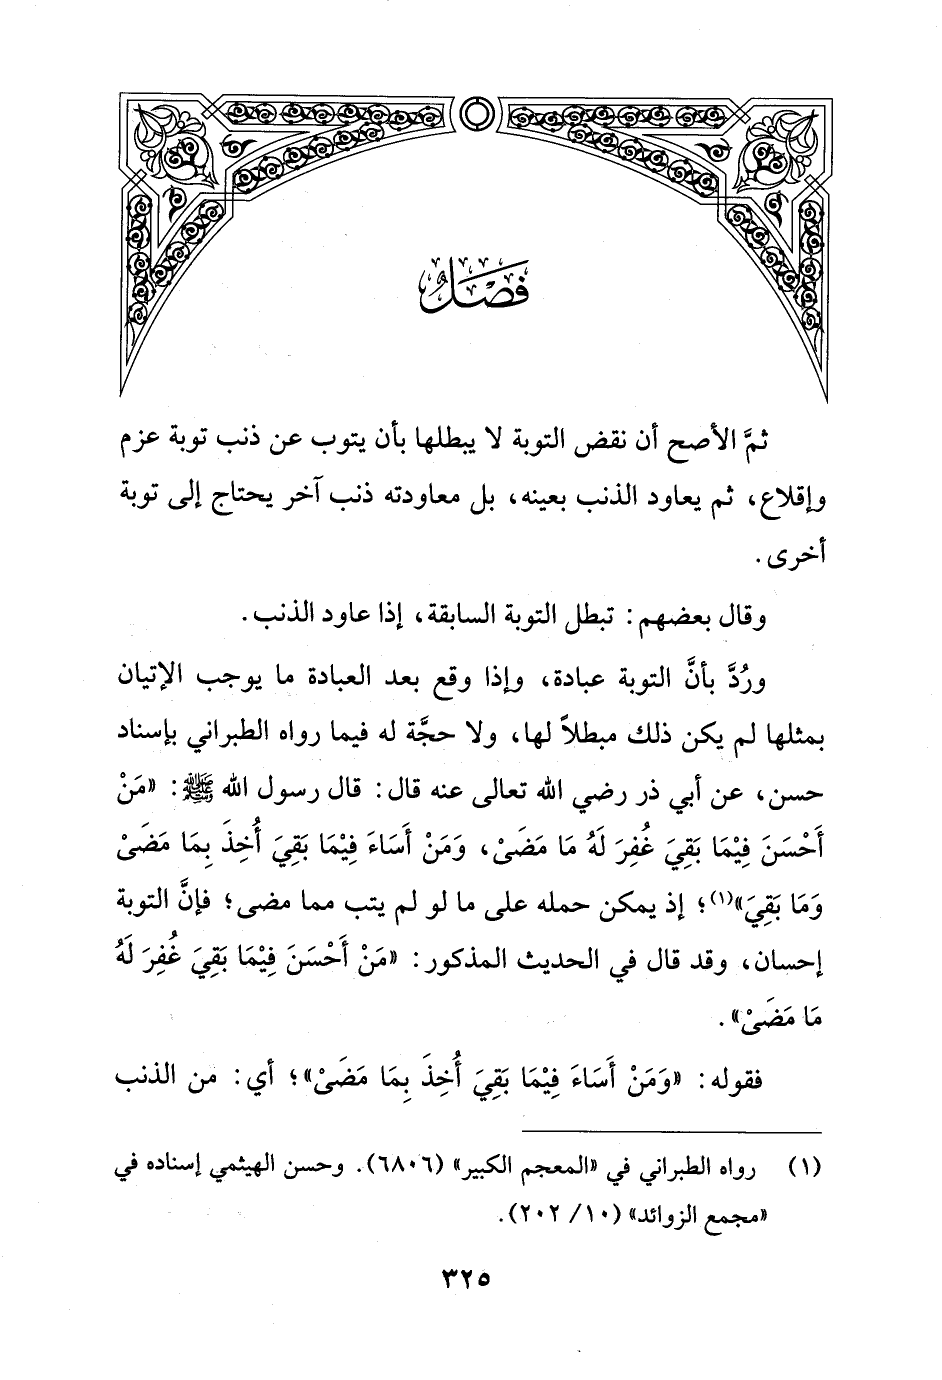 فَصْلٌ
ثمَّ الأصح أن نقض التوبة لا يبطلها بأن يتوب عن ذنب توبة عزم
وإقلاع، ثم يعاود الذنب بعينه، بل معاودته ذنب آخر يحتاج إلى توبة
أخرى.
وقال بعضهم: تبطل التوبة السابقة، إذا عاود الذنب.
ورُدَّ بأنَّ التوبة عبادة، وإذا وقع بعد العبادة ما يوجب الإتيان
بمثلها لم يكن ذلك مبطلاً لها، ولا حجَّة له فيما رواه الطبراني بإسناد
حسن، عن أبي ذر رضي الله تعالى عنه قال: قال رسول الله ﷺ: «مَنْ
أَحْسَنَ فِيْمَا بَقِيَ غُفِرَ لَهُ مَا مَضَىْ، وَمَنْ أَسَاءَ فِيْمَا بَقِيَ أُخِذَ بِمَا مَضَىْ
وَمَا بَقِيَ»(١)؛ إذ يمكن حمله على ما لو لم يتب مما مضى؛ فإنَّ التوبة
إحسان، وقد قال في الحديث المذكور: «مَنْ أَحْسَنَ فِيْمَا بَقِيَ غُفِرَ لَهُ
مَا مَضَىْ».
فقوله: «وَمَنْ أَسَاءَ فِيْمَا بَقِيَ أُخِذَ بِمَا مَضَىْ»؛ أي: من الذنب
(١) رواه الطبراني في «المعجم الكبير» (٦٨٠٦). وحسن الهيثمي إسناده في
«مجمع الزوائد» (١٠/ ٢٠٢).
٣٢٥